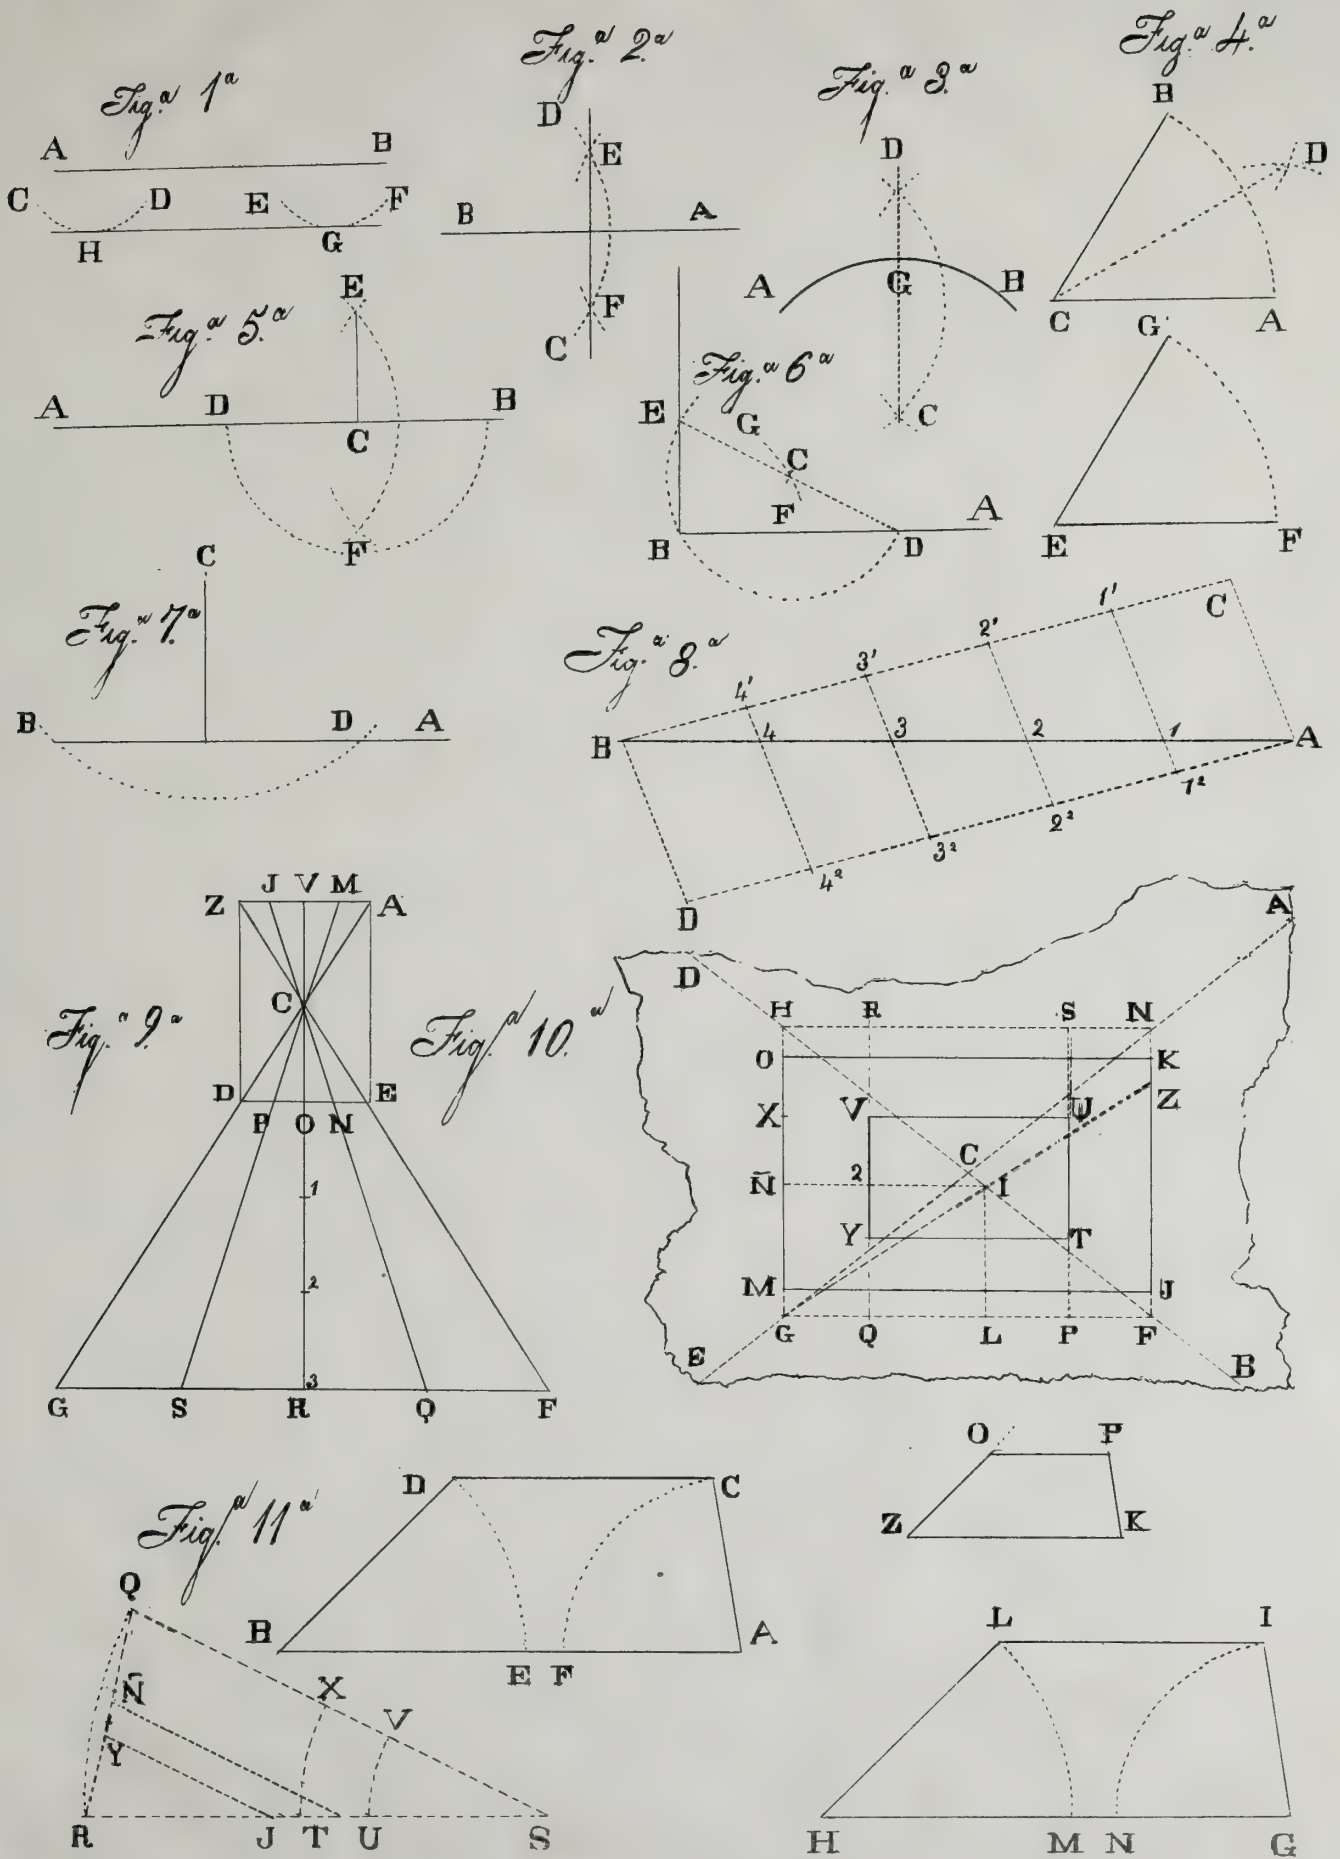 Fig.ª 1ª
A B
C D E F
H G
Fig.ª 2.ª
D
E
B A
F
C
Fig.ª 3.ª
D
A G B
C
Fig.ª 4.ª
B
D
C A
G'
E F
Fig.ª 5.ª
E
A D B
C
F
Fig.ª 6.ª
E G
C
F A
B D
Fig.ª 7.ª
C
B D A
Fig.ª 8.ª
1' C
2'
3'
4'
B 4 3 2 1 A
1²
2²
3²
4²
D
Fig.ª 9.ª
J V M
Z A
C
D E
P O N
1
2
3
G S R Q F
Fig.ª 10.ª
A
D
H R S N
O K
Z
X V U
C
Ñ 2 I
Y T
M J
G Q L P F
E B
Fig.ª 11ª
D C
B A
E F
O P
Z K
Q
Ñ X
V
Y
R J T U S
L I
H M N G